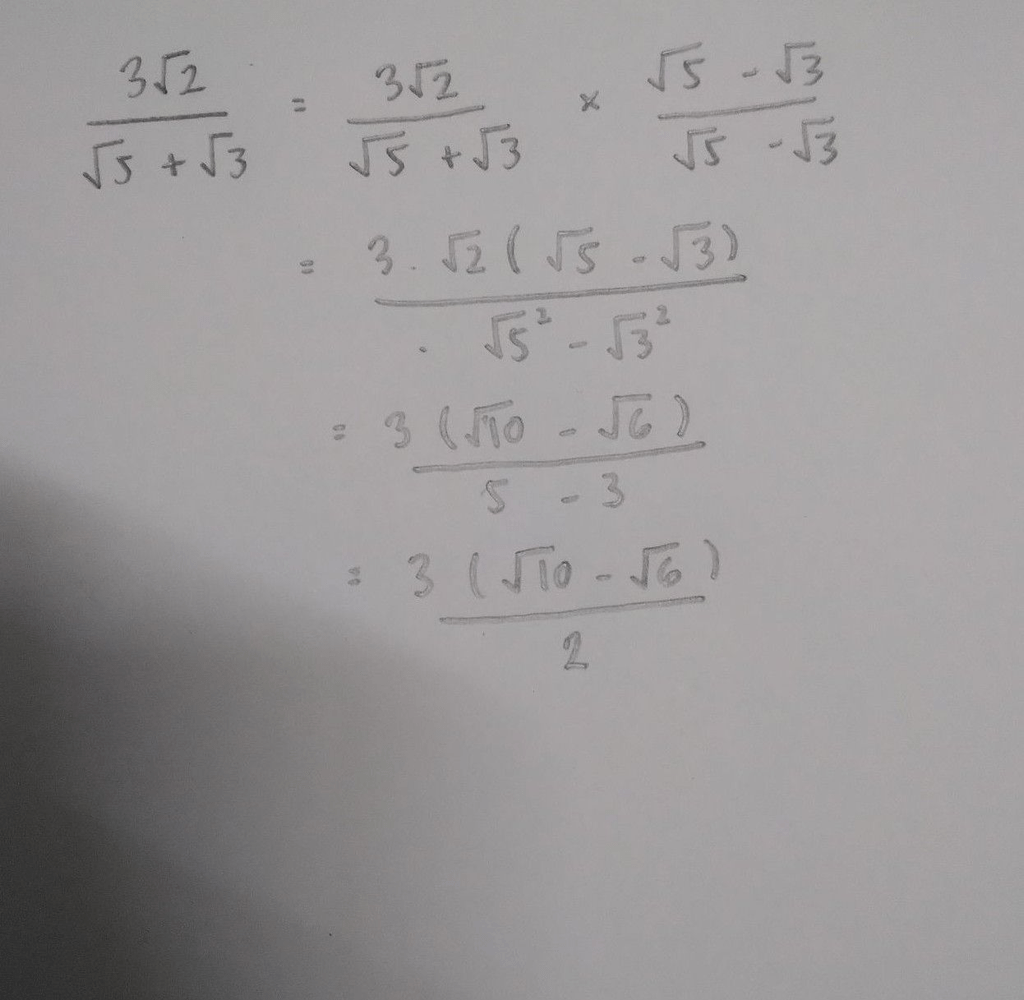 3√2 / √5 + √3 = 3√2 / √5 + √3 × √5 - √3 / √5 - √3
= 3 . √2 ( √5 - √3 ) / √5² - √3²
= 3 ( √10 - √6 ) / 5 - 3
= 3 ( √10 - √6 ) / 2